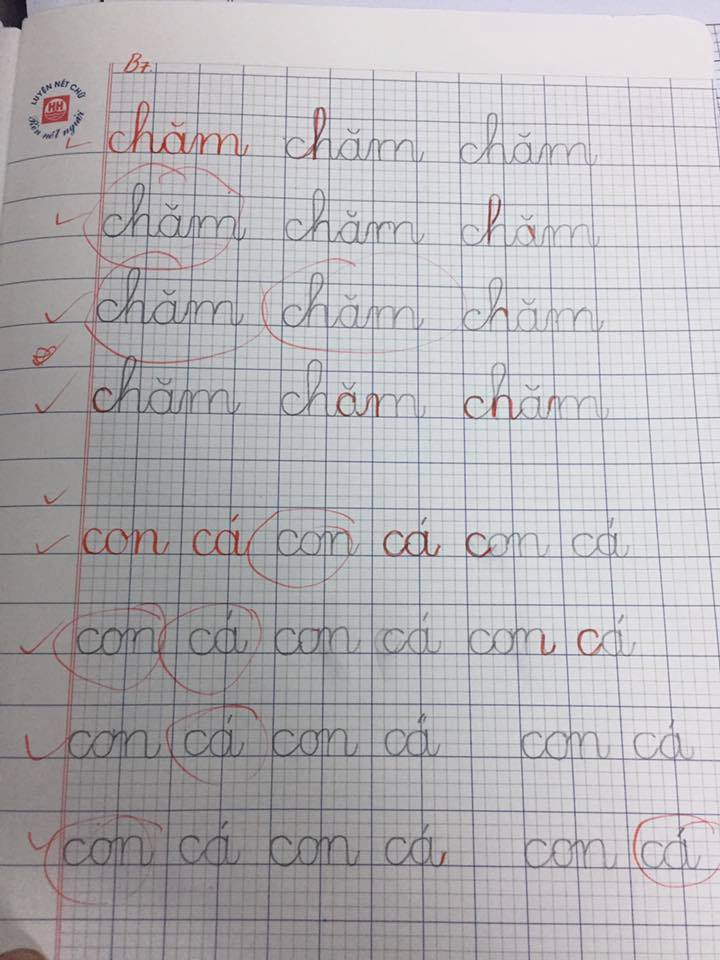 B7.
LUYỆN NÉT CHỮ
HH
Rèn nết người
chăm chăm chăm
chăm chăm chăm
chăm chăm chăm
chăm chăm chăm
con cá con cá con cá
con cá con cá con cá
con cá con cá con cá
con cá con cá con cá